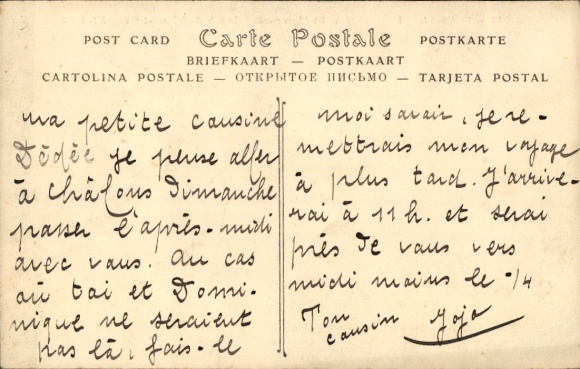 POST CARD Carte Postale POSTKARTE
BRIEFKAART — POSTKAART
CARTOLINA POSTALE — ОТКРЫТОЕ ПИСЬМО — TARJETA POSTAL
ma petite cousine
Dédée je pense aller
à châlons dimanche
passer l'après-midi
avec vous. Au cas
où toi et Domi-
nique ne seraient
pas là, fais-le
moi savoir, je re-
mettrais mon voyage
à plus tard. J'arrive-
rai à 11h. et serai
près de vous vers
midi moins le 1/4
Ton
cousin Jojo